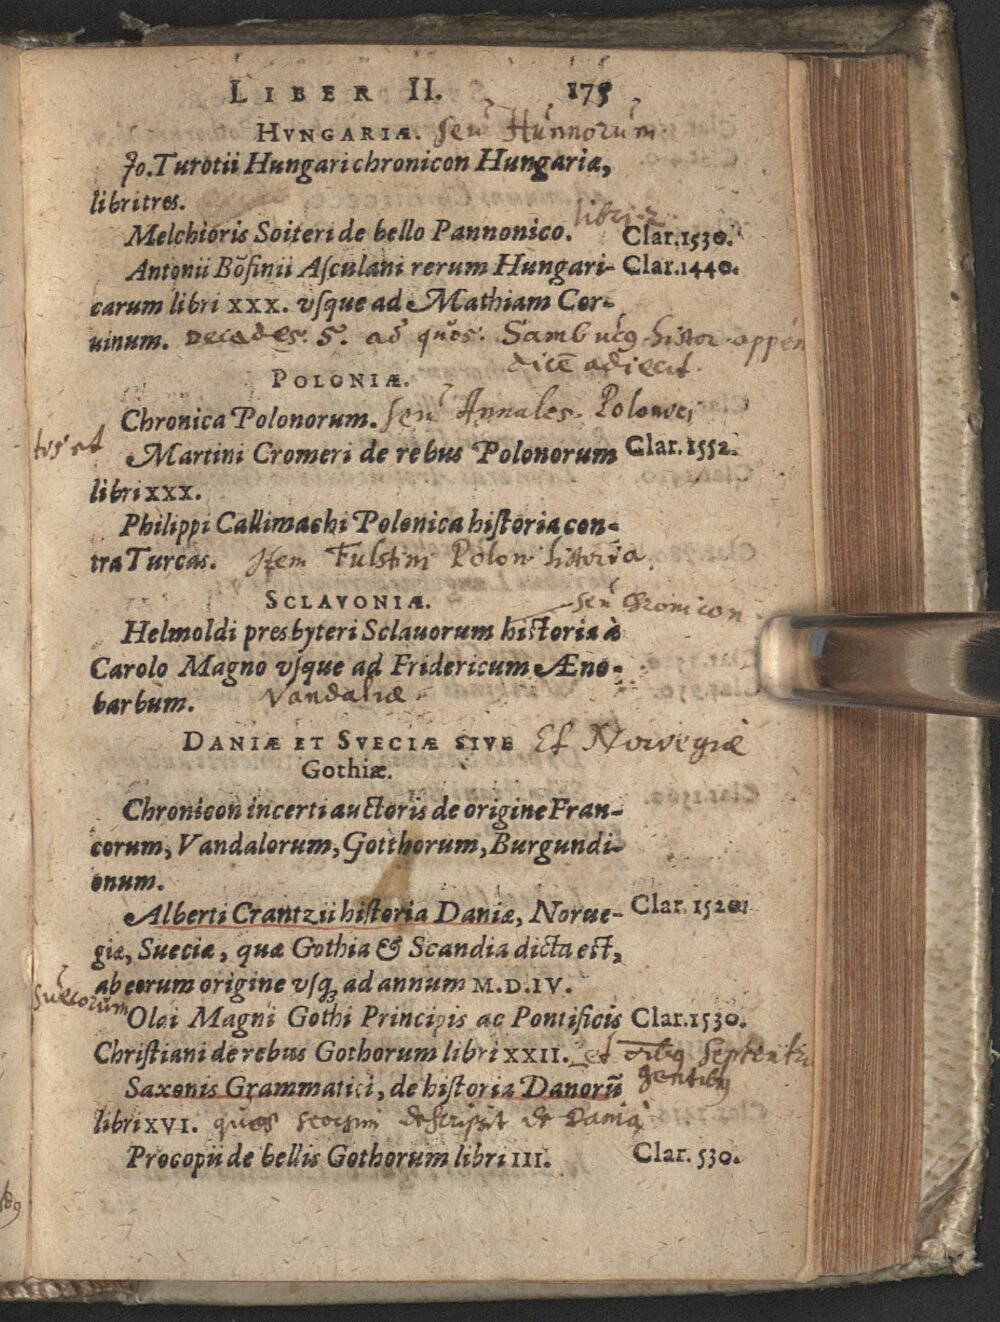 LIBER II. 175
HVNGARIÆ. seu Hunnorum
Jo. Turotii Hungari chronicon Hungariæ,
libri tres.
libri 2.
Melchioris Soiteri de bello Pannonico. Clar. 1530.
Antonii Bõfinii Aſculani rerum Hungari- Clar. 1440.
carum libri XXX. vſque ad Mathiam Cor-
uinum. Decades. 5. ad quos. Sambucꝰ histor. appen
dicẽ adiecit.
POLONIÆ.
Chronica Polonorum. seu Annales Polon
Martini Cromeri de rebus Polonorum Clar. 1552.
libri XXX.
Philippi Callimachi Polonica hiſtoria con-
tra Turcas. Item Fulstin Polon. historia.
SCLAVONIÆ.
seu Chronicon
Helmoldi presbyteri Sclauorum hiſtoria à
Carolo Magno vſque ad Fridericum Æno-
barbum. Vandaliæ
DANIÆ ET SVECIÆ SIVE Et Norvegiæ
Gothiæ.
Chronicon incerti auctoris de origine Fran-
corum, Vandalorum, Gotthorum, Burgundi-
onum.
Alberti Crantzii hiſtoria Daniæ, Norue- Clar. 1520.
giæ, Sueciæ, quæ Gothia & Scandia dicta eſt,
ab eorum origine vſq; ad annum M.D.IV.
Suecorum
Olai Magni Gothi Principis ac Pontificis Clar. 1530.
Chriſtiani de rebus Gothorum libri XXII. et Septentr
gentibꝰ
Saxonis Grammatici, de hiſtoria Danorũ
libri XVI. quos seorsim descripsit de Dania
Procopii de bellis Gothorum libri III. Clar. 530.